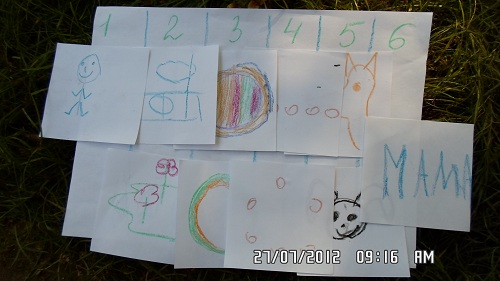 1 2 3 4 5 6
МАМА
27/07/2012 09:16 AM